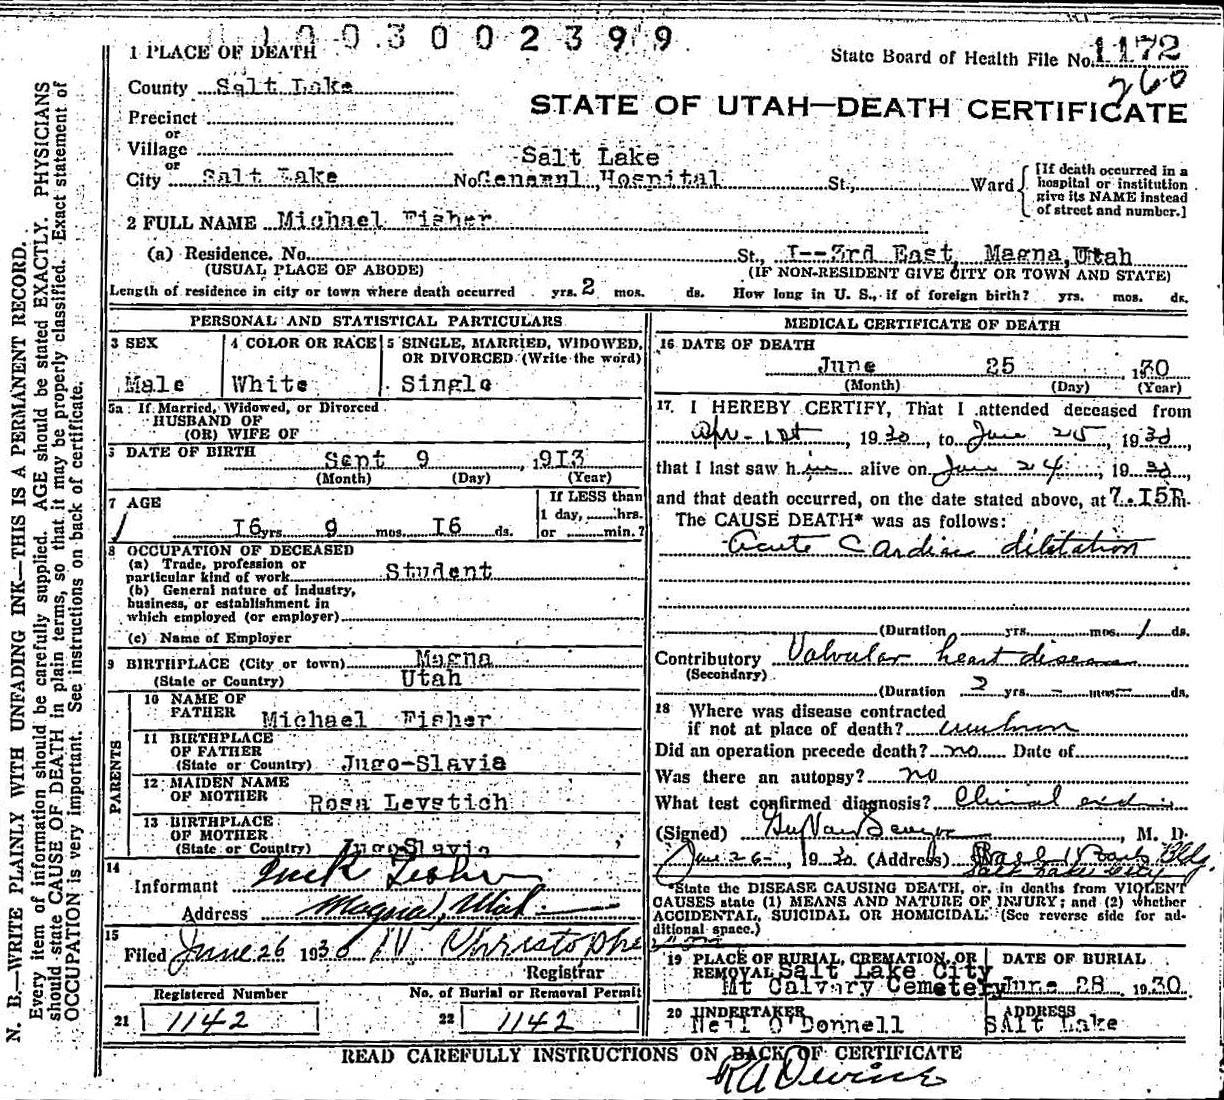 1003002399
1 PLACE OF DEATH
State Board of Health File No. 1172
260
County Salt Lake
STATE OF UTAH—DEATH CERTIFICATE
Precinct
or
Village
or
City Salt Lake
Salt Lake
No General Hospital St., Ward
[If death occurred in a
hospital or institution
give its NAME instead
of street and number.]
2 FULL NAME Michael Fisher
(a) Residence. No. St., I--3rd East, Magna, Utah
(USUAL PLACE OF ABODE) (IF NON-RESIDENT GIVE CITY OR TOWN AND STATE)
Length of residence in city or town where death occurred yrs. 2 mos. ds. How long in U. S., if of foreign birth? yrs. mos. ds.
PERSONAL AND STATISTICAL PARTICULARS
3 SEX
Male
4 COLOR OR RACE
White
5 SINGLE, MARRIED, WIDOWED,
OR DIVORCED (Write the word)
Single
5a If Married, Widowed, or Divorced
HUSBAND OF
(OR) WIFE OF
6 DATE OF BIRTH Sept 9, 1913
(Month) (Day) (Year)
7 AGE
I6 yrs 9 mos. I6 ds.
If LESS than
1 day, hrs.
or min.?
8 OCCUPATION OF DECEASED
(a) Trade, profession or
particular kind of work Student
(b) General nature of industry,
business, or establishment in
which employed (or employer)
(c) Name of Employer
9 BIRTHPLACE (City or town) Magna
(State or Country) Utah
PARENTS
10 NAME OF
FATHER Michael Fisher
11 BIRTHPLACE
OF FATHER
(State or Country) Jugo-Slavia
12 MAIDEN NAME
OF MOTHER Rosa Levstich
13 BIRTHPLACE
OF MOTHER
(State or Country) Jugo-Slavia
14
Informant
Address Magna, Utah
15
Filed June 26 1930
Registrar
Registered Number
21 1142
No. of Burial or Removal Permit
22 1142
MEDICAL CERTIFICATE OF DEATH
16 DATE OF DEATH
June 25, 1930
(Month) (Day) (Year)
17. I HEREBY CERTIFY, That I attended deceased from
Apr - 1st, 1930, to June 25, 1930,
that I last saw him alive on June 24, 1930,
and that death occurred, on the date stated above, at 7.I5P m.
The CAUSE DEATH* was as follows:
acute cardiac dilatation
(Duration yrs. mos. 1 ds.
Contributory Valvular heart disease
(Secondary)
(Duration 2 yrs. - mos. - ds.
18 Where was disease contracted
if not at place of death? unknown
Did an operation precede death? no Date of
Was there an autopsy? no
What test confirmed diagnosis? Clinical
(Signed) , M. D.
June 26, 1930 (Address) Bldg.
Salt Lake City
*State the DISEASE CAUSING DEATH, or, in deaths from VIOLENT
CAUSES state (1) MEANS AND NATURE OF INJURY; and (2) whether
ACCIDENTAL, SUICIDAL OR HOMICIDAL. (See reverse side for ad-
ditional space.)
19 PLACE OF BURIAL, CREMATION, OR
REMOVAL Salt Lake City
Mt Calvary Cemetery
DATE OF BURIAL
June 28 1930.
20 UNDERTAKER
Neil O'Donnell
ADDRESS
SAlt Lake
READ CAREFULLY INSTRUCTIONS ON BACK OF CERTIFICATE
N. B.—WRITE PLAINLY WITH UNFADING INK—THIS IS A PERMANENT RECORD.
Every item of information should be carefully supplied. AGE should be stated EXACTLY. PHYSICIANS
should state CAUSE OF DEATH in plain terms, so that it may be properly classified. Exact statement of
OCCUPATION is very important. See instructions on back of certificate.